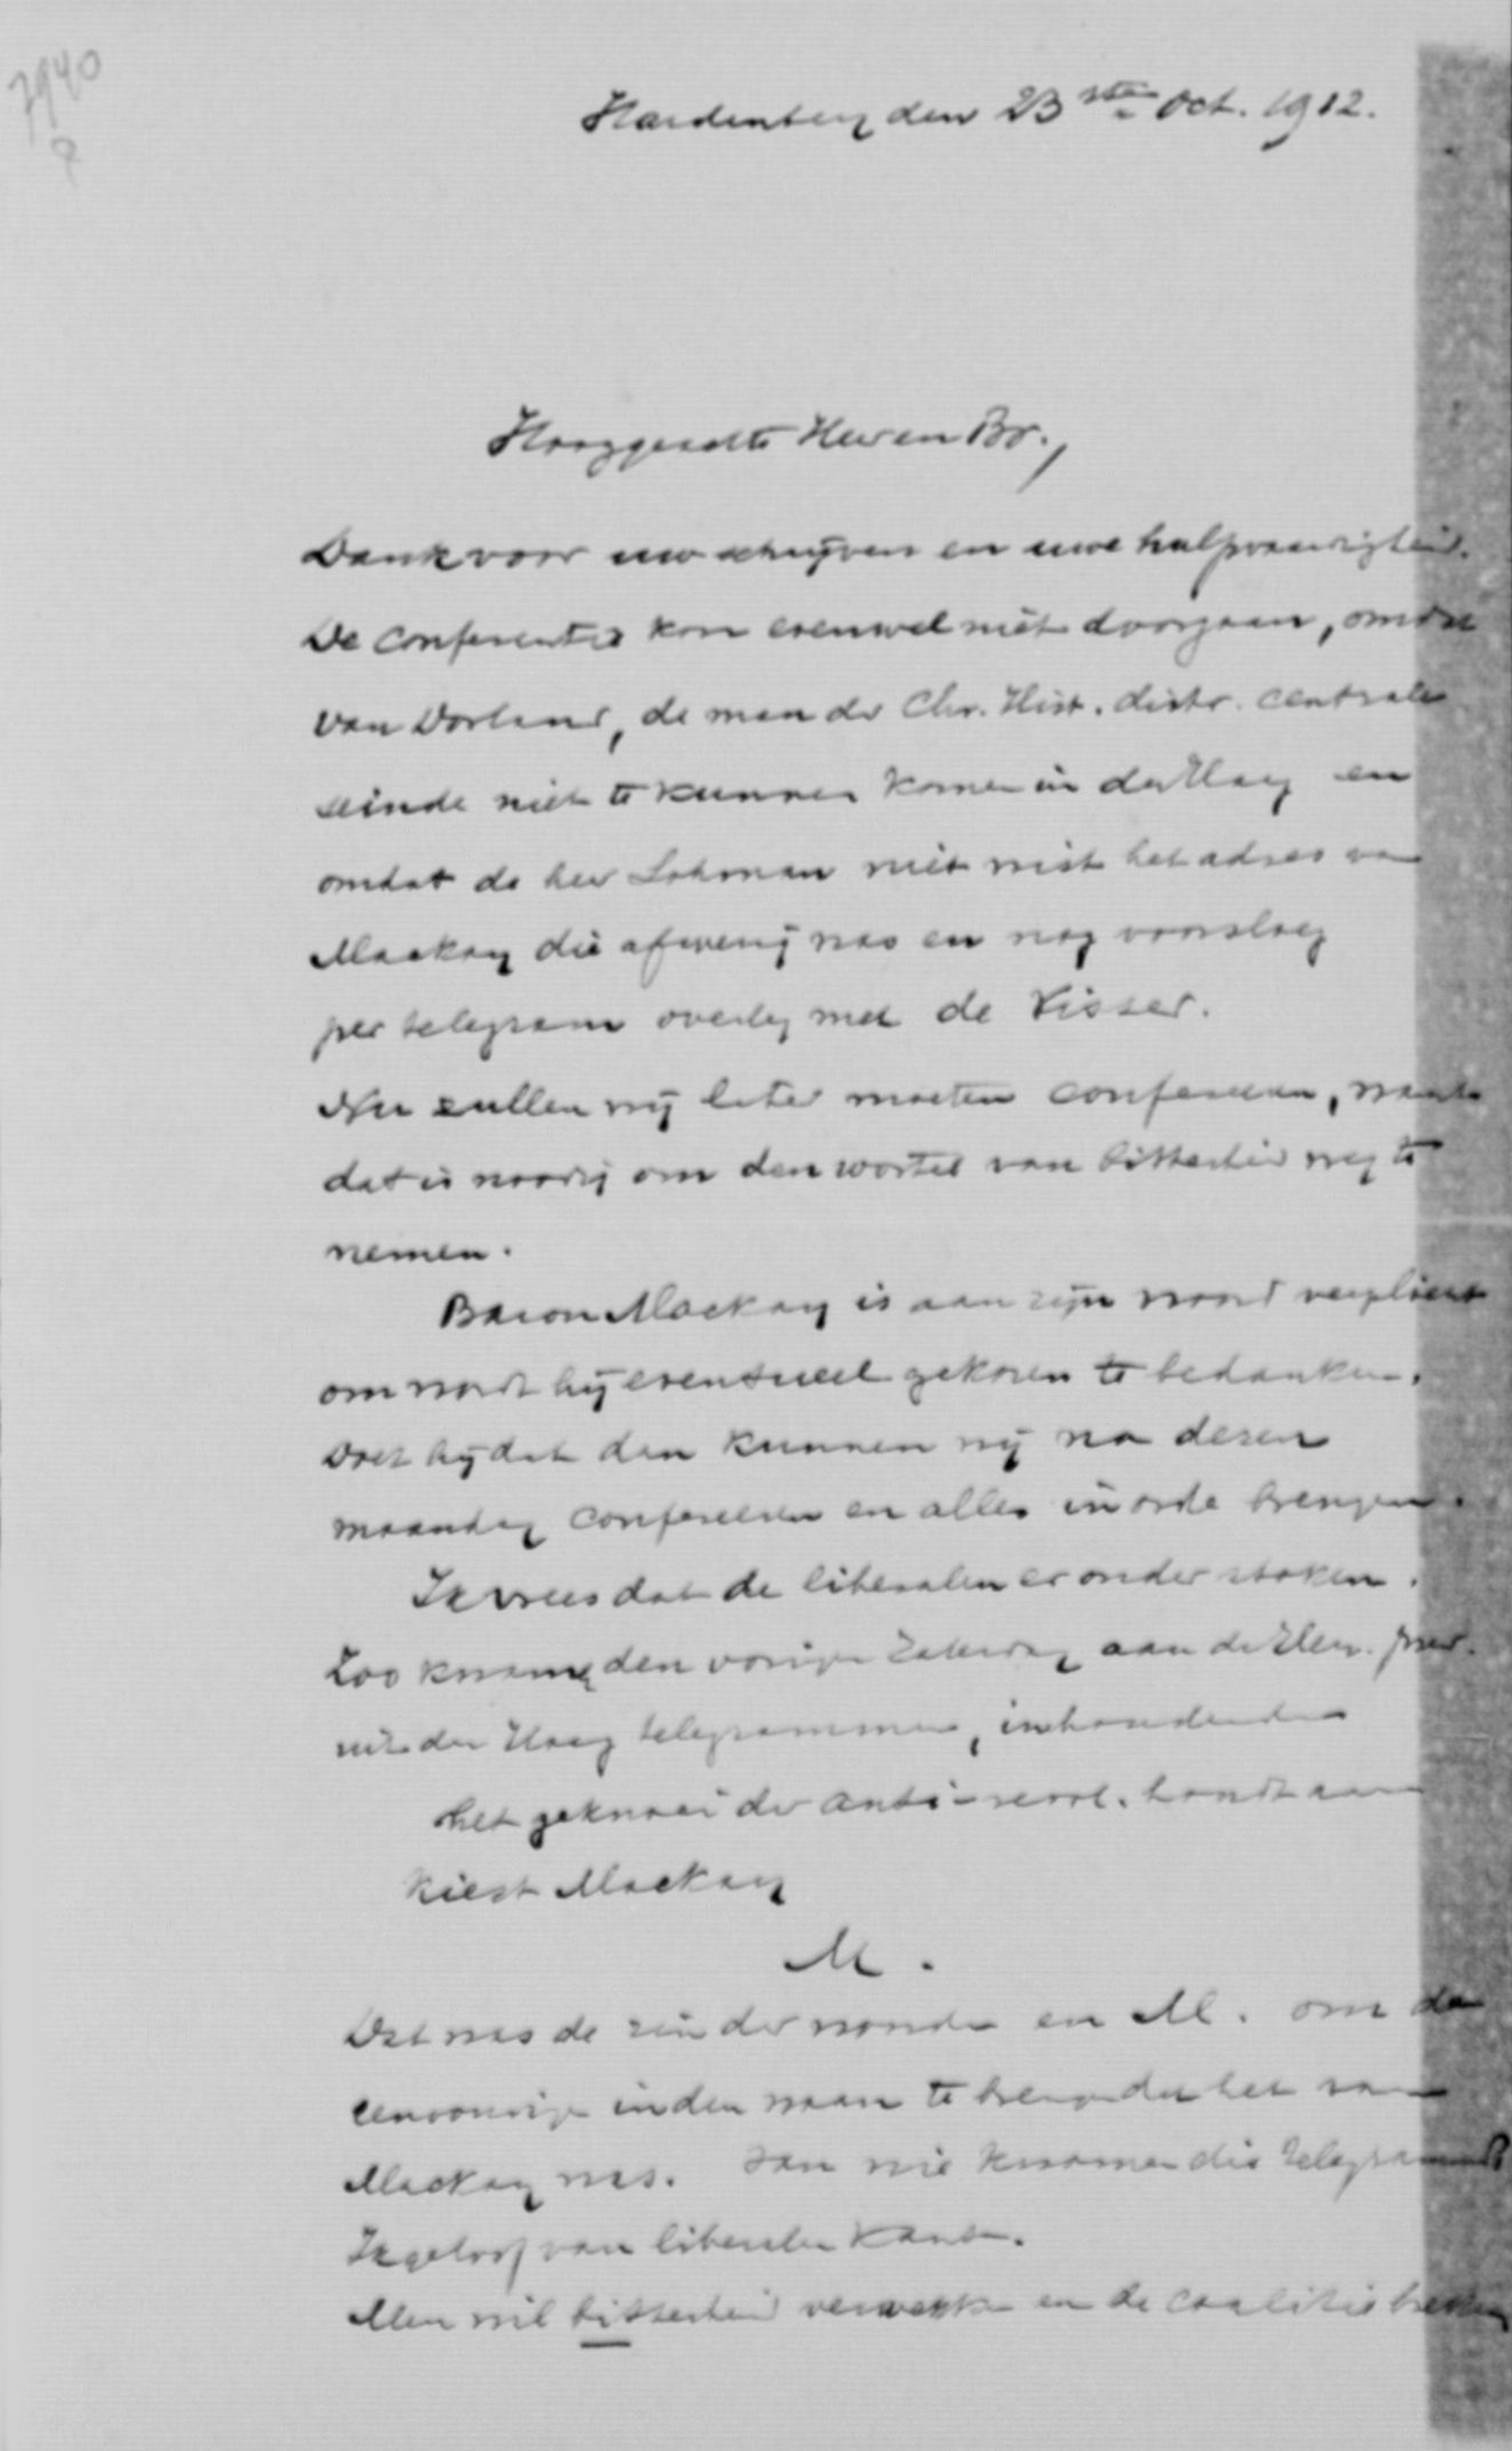 7940
Hardenberg den 23ste Oct. 1912.
Hooggeachte Heer en Br.,
Dank voor uw schrijven en uwe hulpvaardigheid.
De Conferentie kon evenwel niet doorgaan, omdat
van Dorland, de man der Chr. Hist. distr. centrale
seinde niet te kunnen komen in den Haag en
omdat de heer Lohman niet wist het adres van
Mackay die afwezig was en nog voorsloeg
per telegram overleg met de Visser.
Nu zullen wij later moeten confereeren, want
dat is noodig om den wortel van bitterheid weg te
nemen.
Baron Mackay is aan zijn woord verplicht
om wordt hij eventueel gekozen te bedanken.
Doet hij dat dan kunnen wij na dezen
maandag confereeren en alles in orde brengen.
Ik vrees dat de liberalen er onder stoken.
Zoo kwamen den vorige Zaterdag aan de
uit den Haag telegrammen, inhoudende
het geknoei der anti-revol. houdt aan
kiest Mackay
M.
Dat was de zin der woorden en M. om de
eenvoudige in den waan te brengen dat het van
Mackay was. Van wie kwamen die telegrammen?
Ik geloof van liberale kant.
Men wil bitterheid verwekken en de coalitie breken